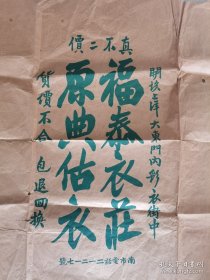 真不二價
開設上海大東門內彩衣街中
福泰衣莊
原典估衣
貨價不合 包退回換
南市電話二一二一七號